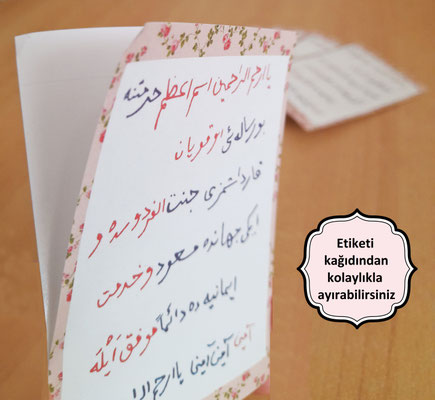 يا ارحم الراحمين اسم اعظم حرمتنه
بو رساله ئی اوقويان
قارداشمزی جنت الفردوسده و
ايکی جهانده مسعود و خدمت
ايمانيه ده دائماً موفق أيْلَه
آمين آمين آمين يا ارحم الرا
Etiketi
kağıdından
kolaylıkla
ayırabilirsiniz